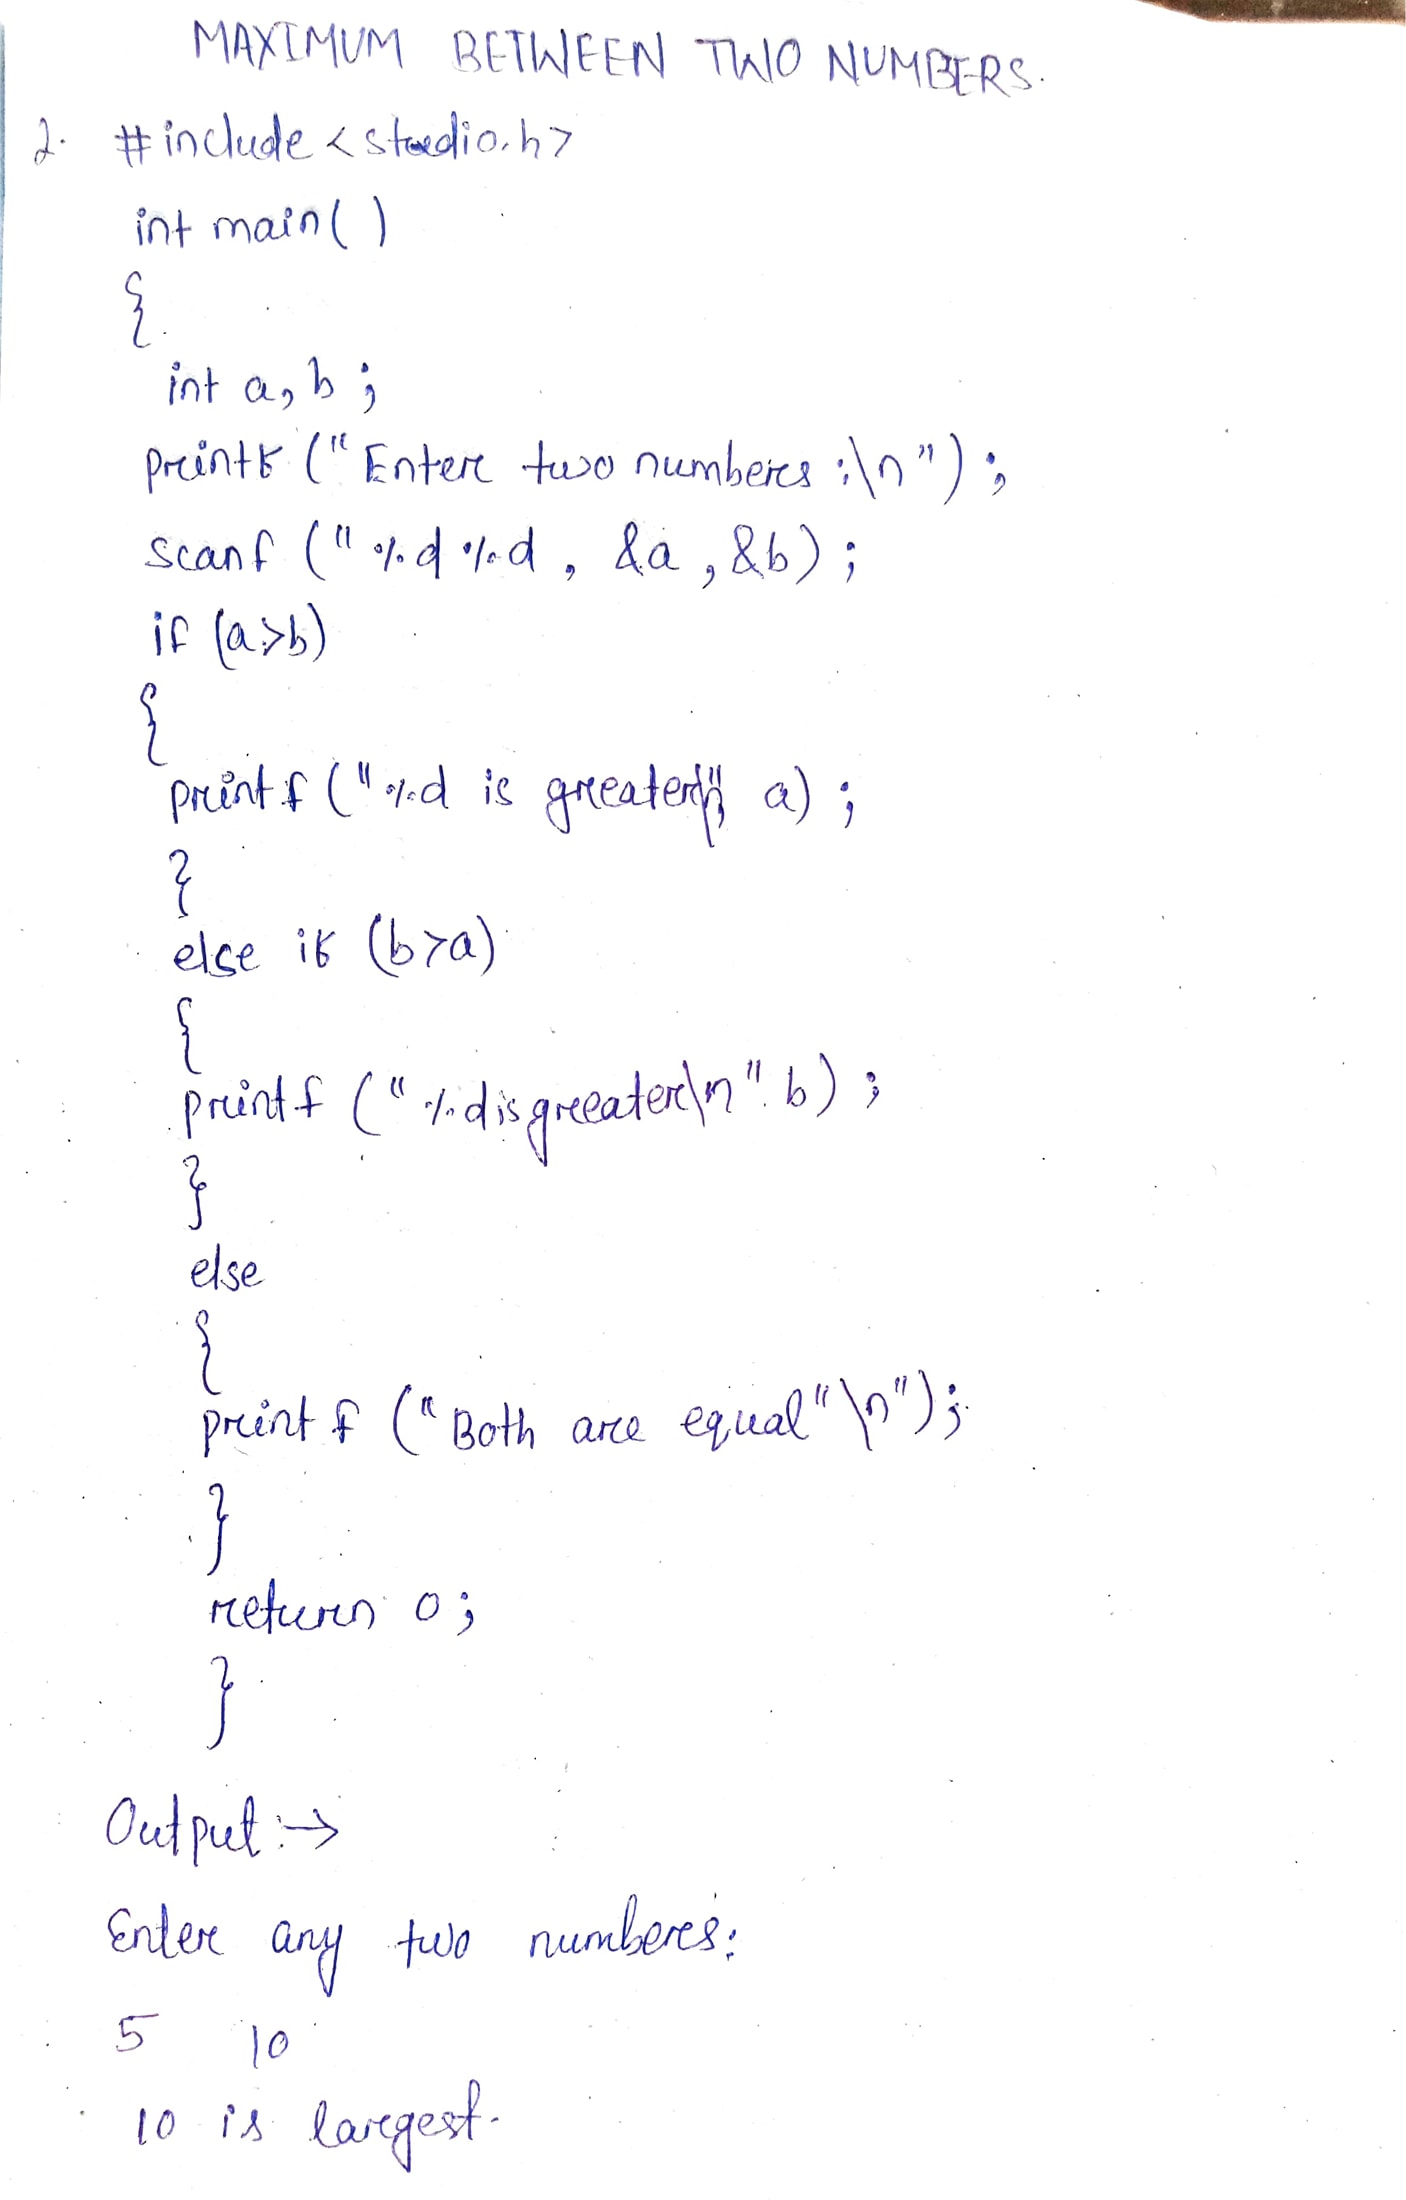 MAXIMUM BETWEEN TWO NUMBERS.
2. #include <stdio.h>
int main( )
{
int a, b ;
printf (" Enter two numbers :\n") ;
scanf (" %d %d , &a , &b) ;
if (a>b)
{
printf (" %d is greater\n", a) ;
}
else if (b>a)
{
printf (" %d is greater\n" b) ;
}
else
{
printf (" Both are equal" \n") ;
}
return 0 ;
}
Output :→
Enter any two numbers:
5 10
10 is largest.